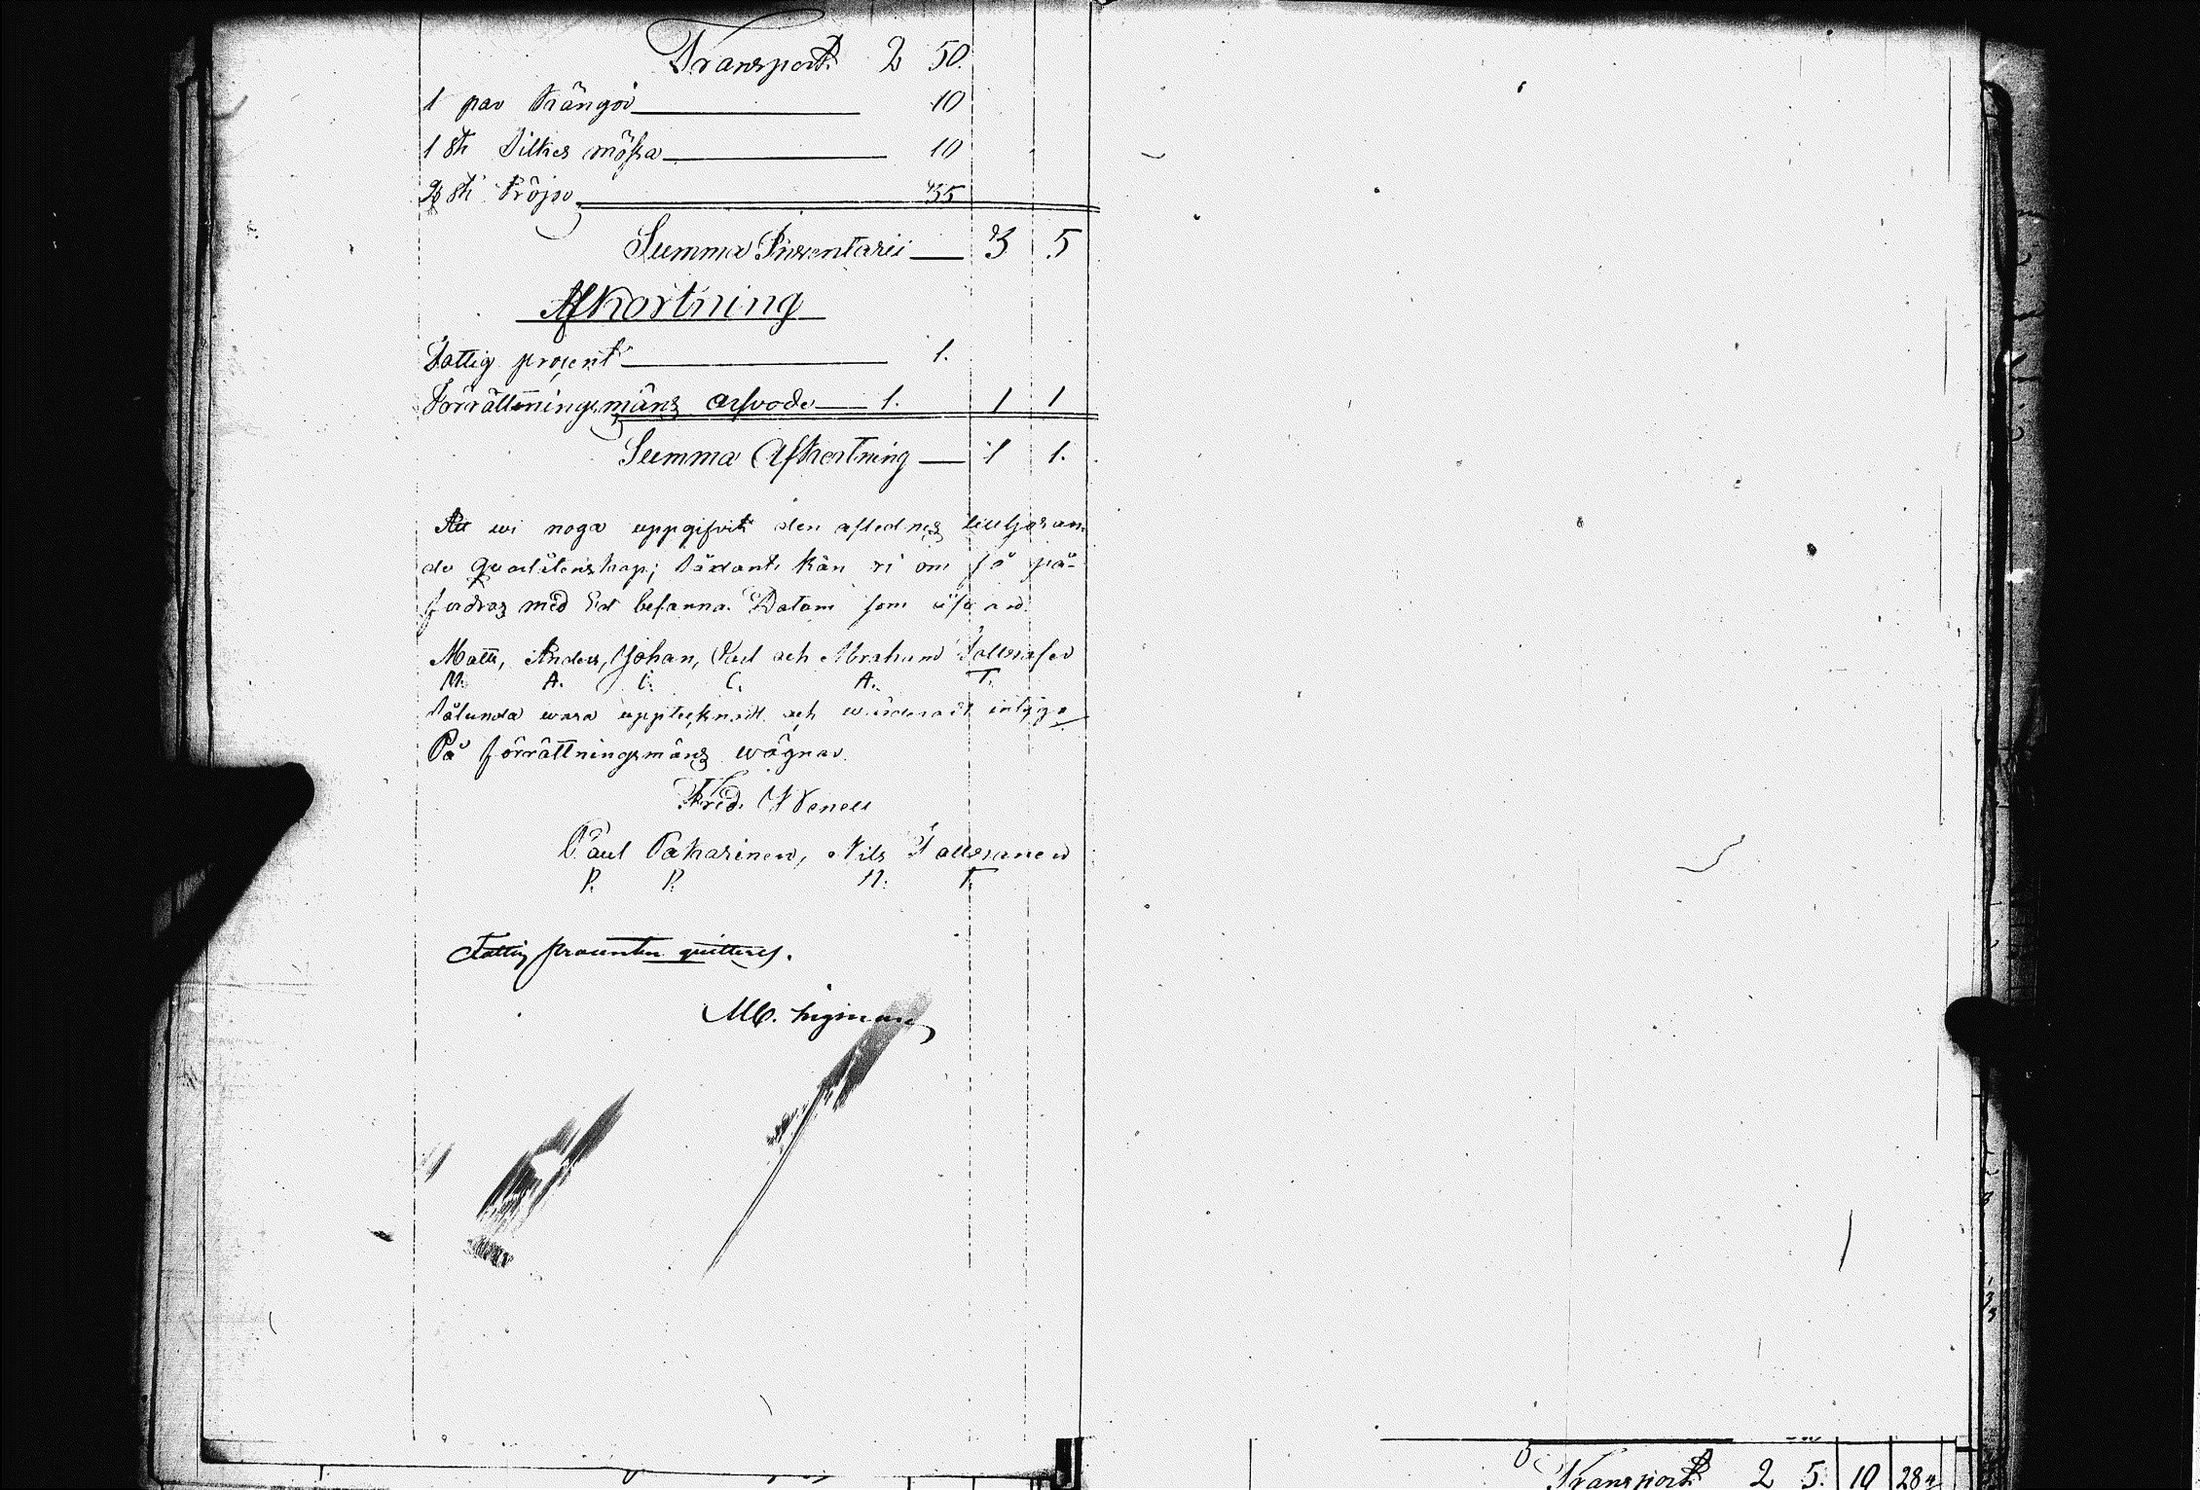 Transport. 2 50.
1 par Trängor 10
1 st Silkes mössa 10
2 st Tröjor 35
Summa Inventarii 3 5
Afkortning
Fattig prosent 1.
Förrättningsmäns arfvode 1. 1 1
Summa Afkortning 1 1.
Att wi noga uppgifvit den aflednes
de qvarlåtenskap; sådant kän vi om så på-
fordras med Ed besanna. Datum som ofvan.
Matts, Anders, Johan, Carl och Abraham
M. A. J. C. A. T.
Sålunda vara upptecknadt och wärderadt intyga
På förrättningsmäns wägnar.
Fred. Wenell
Paul Pakarinen, Nils
P. P. N. T.
Fattig procenten quitteras.
Transport. 2 5. 10 28